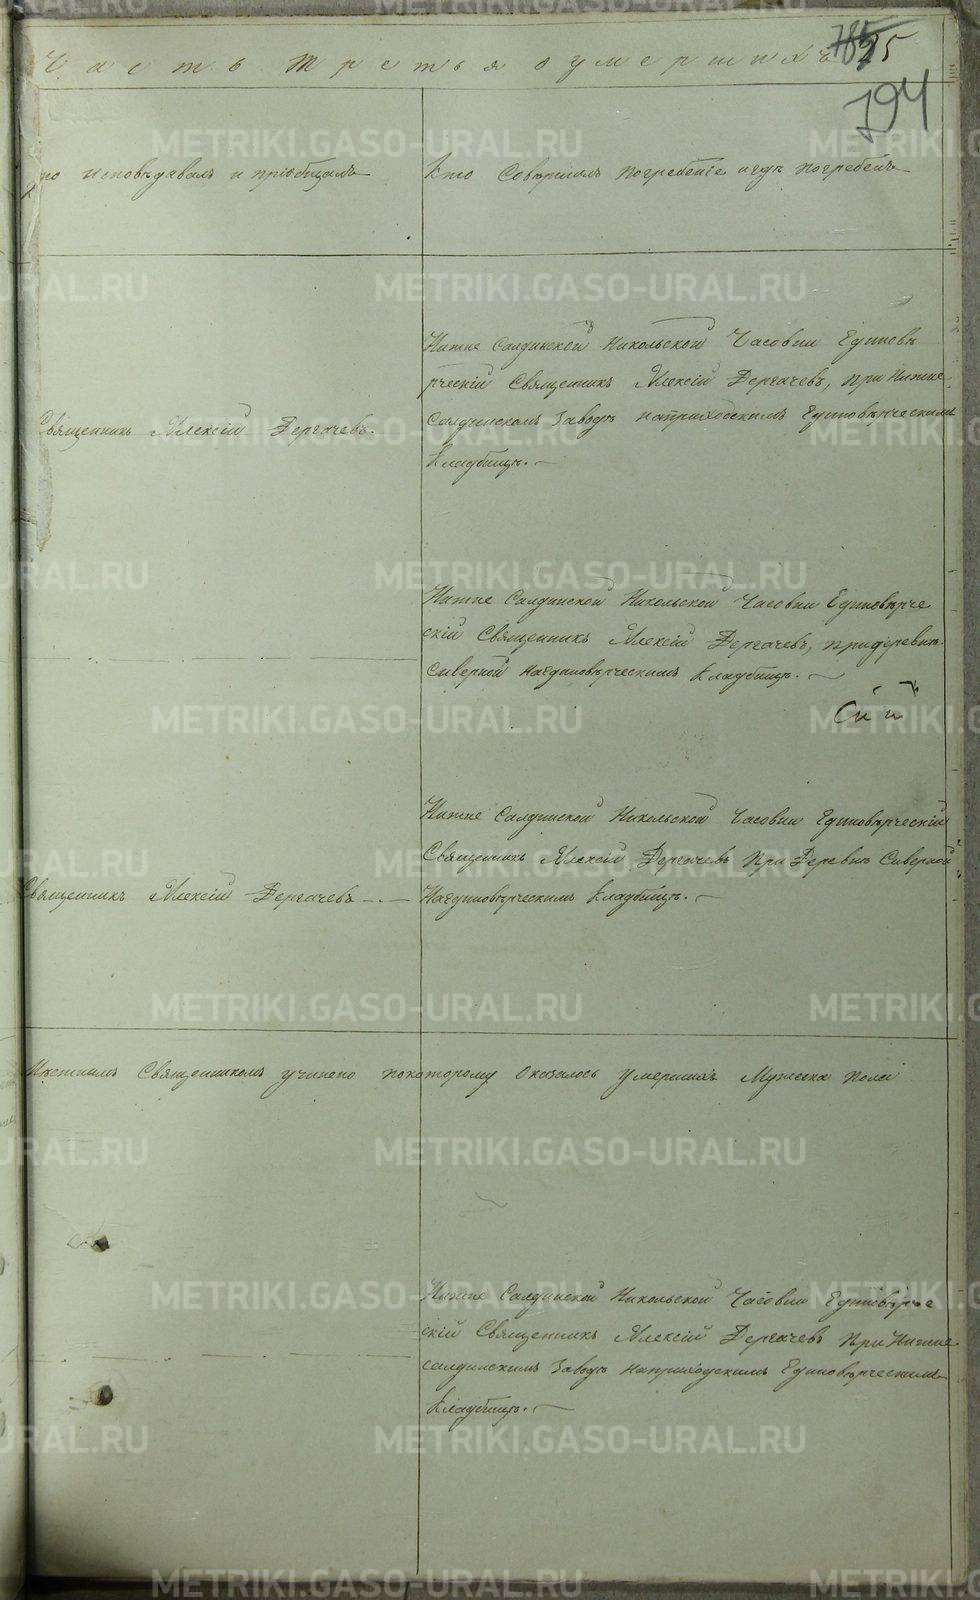 Часть третья о умершихъ
785
25
794
то исповѣдавалъ и пріобщалъ
Кто совершалъ погребеніе и гдѣ погребенъ
Нижне Салдинской Никольской Часовни Единовѣ
рческій Священникъ Алексій Дергачевъ, при Нижне
Салдинскомъ Заводѣ на приходскимъ Единовѣрческимъ
Кладбищѣ.
Священникъ Алексій Дергачевъ.
Нижне Салдинской Никольской Часовни Единовѣрче
скій Священникъ Алексій Дергачевъ, при деревнѣ
сиверной на Единовѣрческимъ Кладбищѣ.
Нижне Салдинской Никольской Часовни Единовѣрческій
Священникъ Алексій Дергачевъ при Деревнѣ Сиверной
на Единовѣрческимъ Кладбищѣ.
Священникъ Алексій Дергачевъ
Священникомъ учинено по которому оказалось умершихъ Мужеска пола
Нижне Салдинской Никольской Часовни Единовѣрче
скій Священникъ Алексій Дергачевъ при Нижне
салдинскимъ Заводѣ на приходскимъ Единовѣрческимъ
Кладбищѣ.
METRIKI.GASO-URAL.RU